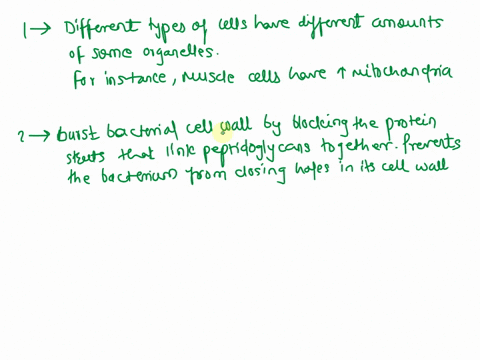 1 → Different types of cells have different amounts
of some organelles.
For instance, Muscle cells have ↑ mitochandria
2 → burst bacterial cell wall by blocking the protein
struts that link peptidoglycans together. Prevents
the bacterium from closing holes in its cell wall